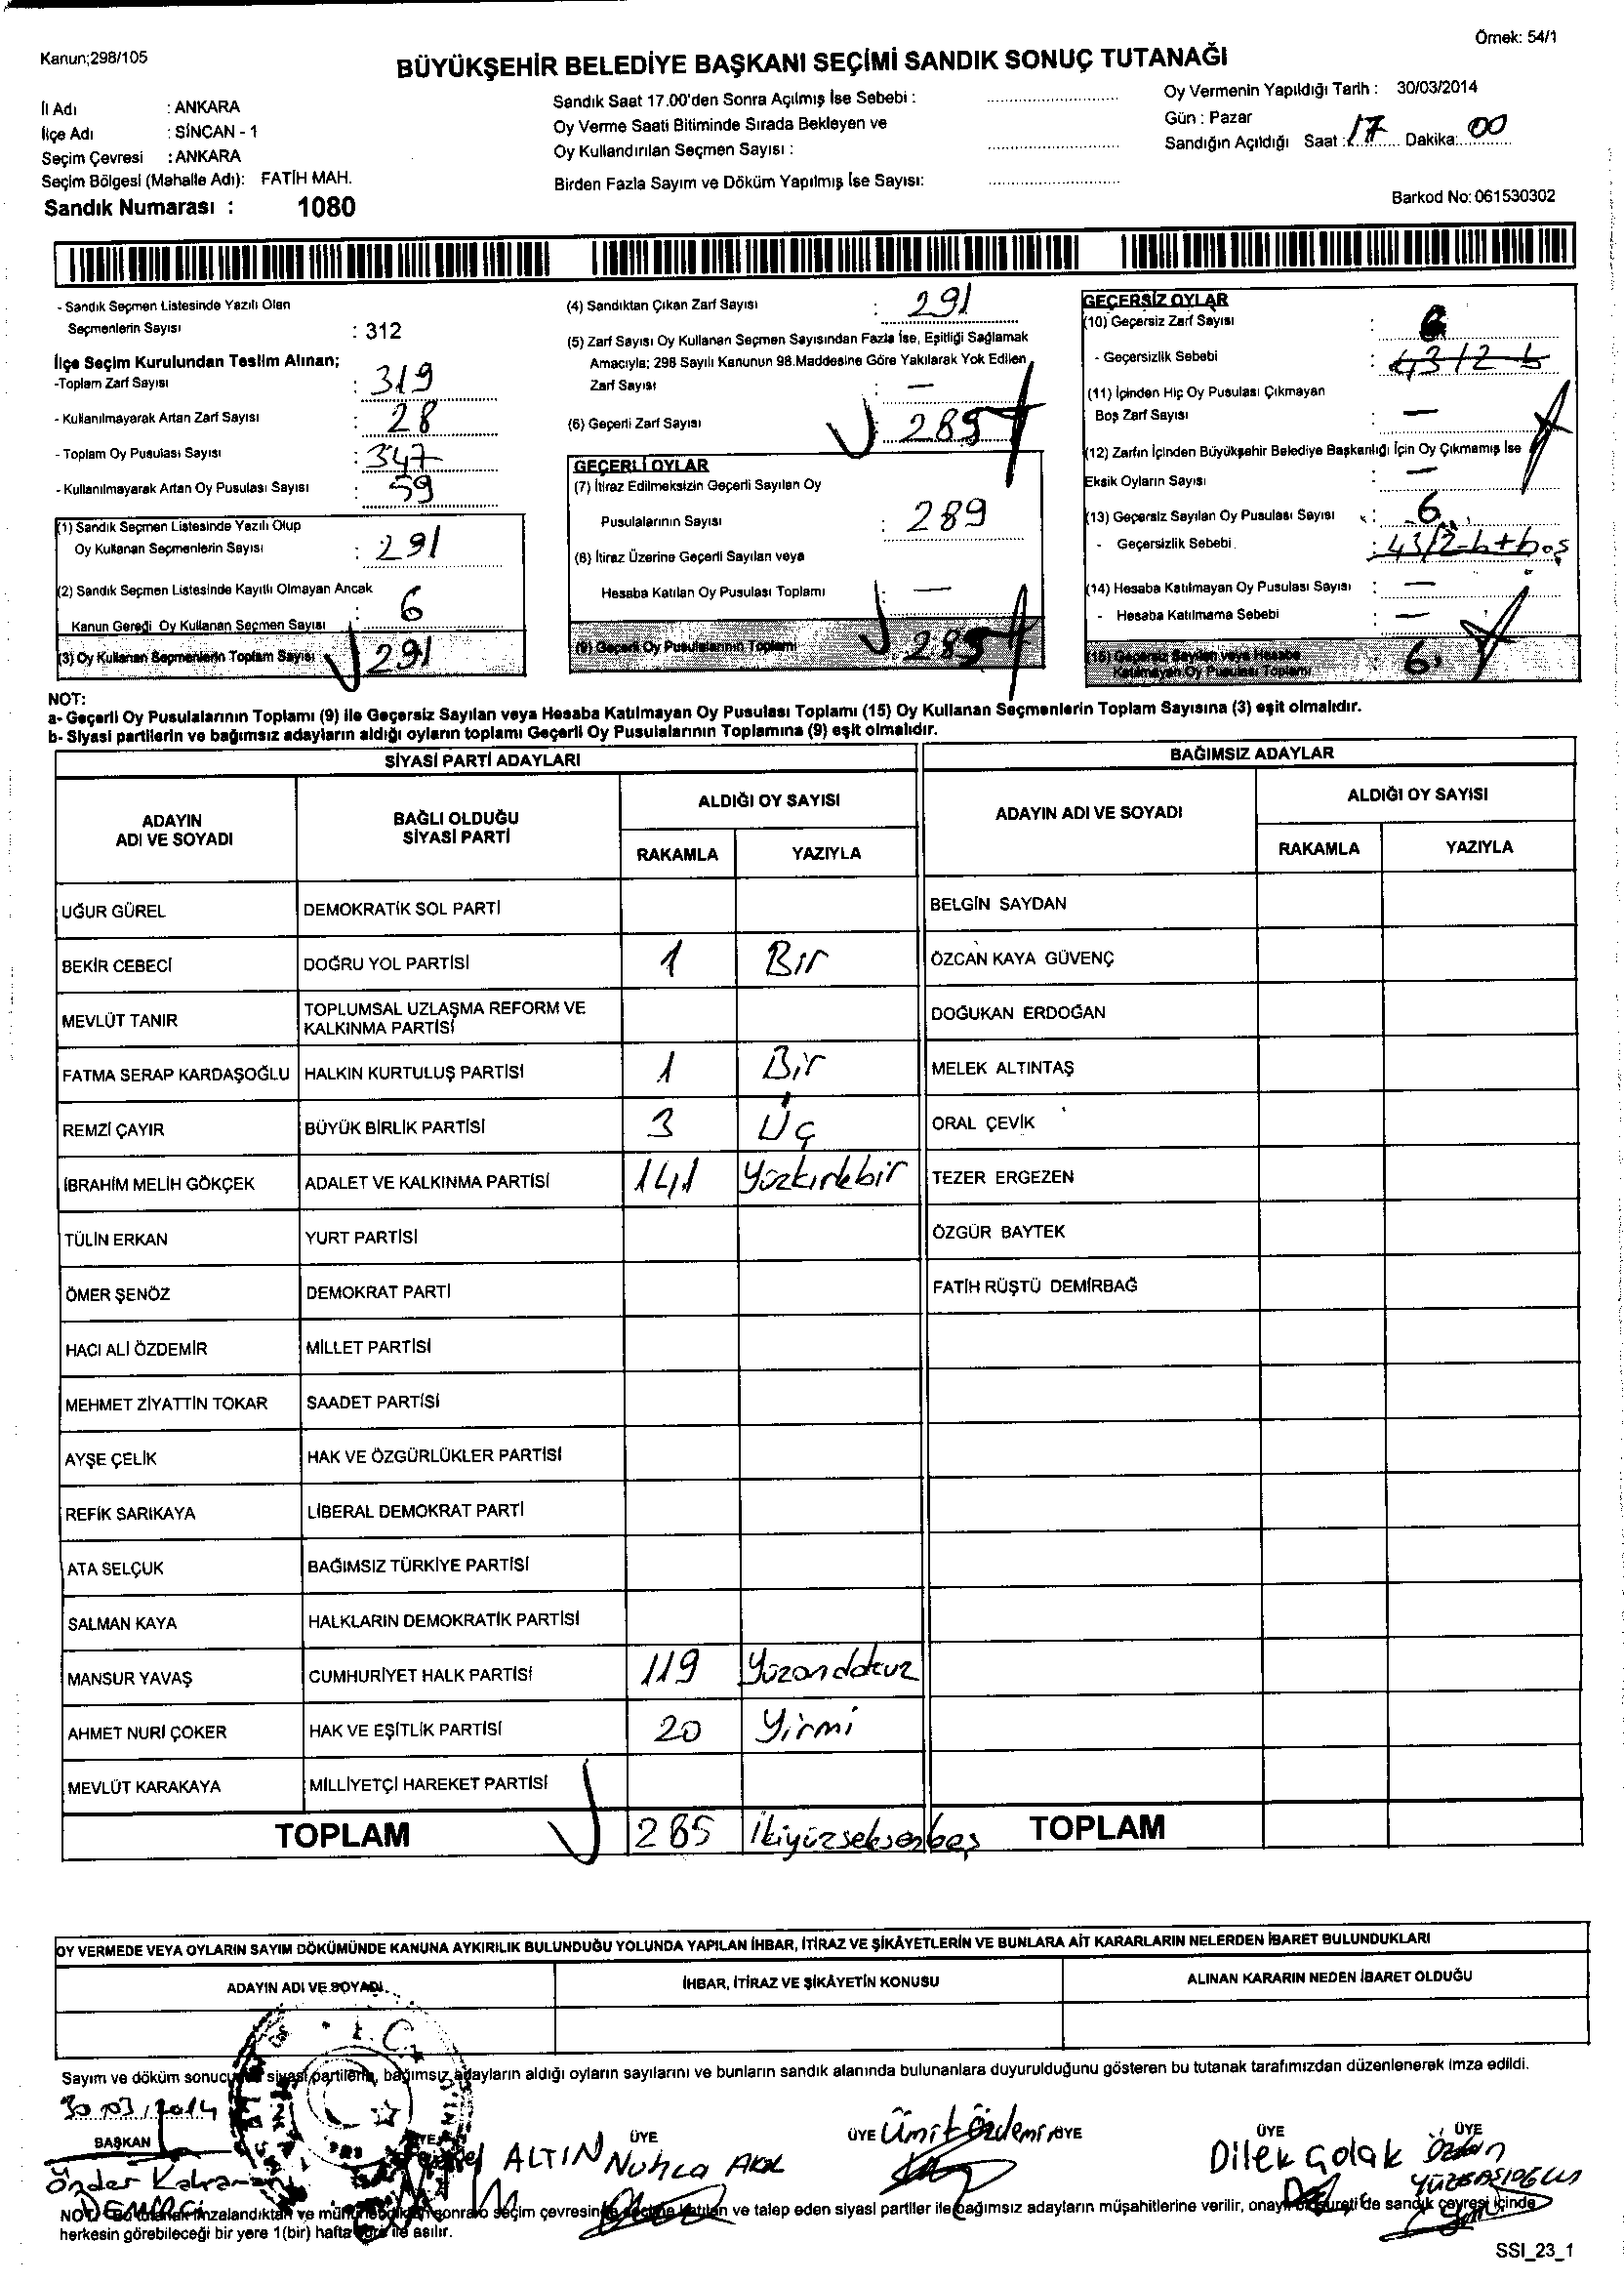 Kanun;298/105
Örnek: 54/1
BÜYÜKŞEHİR BELEDİYE BAŞKANI SEÇİMİ SANDIK SONUÇ TUTANAĞI
İl Adı : ANKARA
İlçe Adı : SİNCAN - 1
Seçim Çevresi : ANKARA
Seçim Bölgesi (Mahalle Adı): FATİH MAH.
Sandık Numarası : 1080
Sandık Saat 17.00'den Sonra Açılmış İse Sebebi :
Oy Verme Saati Bitiminde Sırada Bekleyen ve
Oy Kullandırılan Seçmen Sayısı :
Birden Fazla Sayım ve Döküm Yapılmış İse Sayısı:
Oy Vermenin Yapıldığı Tarih : 30/03/2014
Gün : Pazar
Sandığın Açıldığı Saat : 17 Dakika: 00
Barkod No: 061530302
- Sandık Seçmen Listesinde Yazılı Olan
Seçmenlerin Sayısı : 312
İlçe Seçim Kurulundan Teslim Alınan;
-Toplam Zarf Sayısı : 319
- Kullanılmayarak Artan Zarf Sayısı : 28
- Toplam Oy Pusulası Sayısı : 347
- Kullanılmayarak Artan Oy Pusulası Sayısı : 59
(1) Sandık Seçmen Listesinde Yazılı Olup
Oy Kullanan Seçmenlerin Sayısı : 291
(2) Sandık Seçmen Listesinde Kayıtlı Olmayan Ancak
Kanun Gereği Oy Kullanan Seçmen Sayısı : 6
(3) Oy Kullanan Seçmenlerin Toplam Sayısı 291
(4) Sandıktan Çıkan Zarf Sayısı : 291
(5) Zarf Sayısı Oy Kullanan Seçmen Sayısından Fazla İse, Eşitliği Sağlamak
Amacıyla; 298 Sayılı Kanunun 98.Maddesine Göre Yakılarak Yok Edilen
Zarf Sayısı : —
(6) Geçerli Zarf Sayısı 285
GEÇERLİ OYLAR
(7) İtiraz Edilmeksizin Geçerli Sayılan Oy
Pusulalarının Sayısı : 289
(8) İtiraz Üzerine Geçerli Sayılan veya
Hesaba Katılan Oy Pusulası Toplamı : —
(9) Geçerli Oy Pusulalarının Toplamı 285
GEÇERSİZ OYLAR
(10) Geçersiz Zarf Sayısı : 6
- Geçersizlik Sebebi : 43/2-b
(11) İçinden Hiç Oy Pusulası Çıkmayan
Boş Zarf Sayısı : —
(12) Zarfın İçinden Büyükşehir Belediye Başkanlığı İçin Oy Çıkmamış İse
Eksik Oyların Sayısı : —
(13) Geçersiz Sayılan Oy Pusulası Sayısı : 6
- Geçersizlik Sebebi : 43/2-b+boş
(14) Hesaba Katılmayan Oy Pusulası Sayısı : —
- Hesaba Katılmama Sebebi : —
(15) Geçersiz Sayılan veya Hesaba
Katılmayan Oy Pusulası Toplamı : 6
NOT:
a- Geçerli Oy Pusulalarının Toplamı (9) ile Geçersiz Sayılan veya Hesaba Katılmayan Oy Pusulası Toplamı (15) Oy Kullanan Seçmenlerin Toplam Sayısına (3) eşit olmalıdır.
b- Siyasi partilerin ve bağımsız adayların aldığı oyların toplamı Geçerli Oy Pusulalarının Toplamına (9) eşit olmalıdır.
SİYASİ PARTİ ADAYLARI
BAĞIMSIZ ADAYLAR
ADAYIN
ADI VE SOYADI
BAĞLI OLDUĞU
SİYASİ PARTİ
ALDIĞI OY SAYISI
RAKAMLA YAZIYLA
ADAYIN ADI VE SOYADI
ALDIĞI OY SAYISI
RAKAMLA YAZIYLA
UĞUR GÜREL DEMOKRATİK SOL PARTİ BELGİN SAYDAN
BEKİR CEBECİ DOĞRU YOL PARTİSİ 1 Bir ÖZCAN KAYA GÜVENÇ
MEVLÜT TANIR TOPLUMSAL UZLAŞMA REFORM VE
KALKINMA PARTİSİ DOĞUKAN ERDOĞAN
FATMA SERAP KARDAŞOĞLU HALKIN KURTULUŞ PARTİSİ 1 Bir MELEK ALTINTAŞ
REMZİ ÇAYIR BÜYÜK BİRLİK PARTİSİ 3 Üç ORAL ÇEVİK
İBRAHİM MELİH GÖKÇEK ADALET VE KALKINMA PARTİSİ 141 Yüzkırkbir TEZER ERGEZEN
TÜLİN ERKAN YURT PARTİSİ ÖZGÜR BAYTEK
ÖMER ŞENÖZ DEMOKRAT PARTİ FATİH RÜŞTÜ DEMİRBAĞ
HACI ALİ ÖZDEMİR MİLLET PARTİSİ
MEHMET ZİYATTİN TOKAR SAADET PARTİSİ
AYŞE ÇELİK HAK VE ÖZGÜRLÜKLER PARTİSİ
REFİK SARIKAYA LİBERAL DEMOKRAT PARTİ
ATA SELÇUK BAĞIMSIZ TÜRKİYE PARTİSİ
SALMAN KAYA HALKLARIN DEMOKRATİK PARTİSİ
MANSUR YAVAŞ CUMHURİYET HALK PARTİSİ 119 Yüzondokuz
AHMET NURİ ÇOKER HAK VE EŞİTLİK PARTİSİ 20 Yirmi
MEVLÜT KARAKAYA MİLLİYETÇİ HAREKET PARTİSİ
TOPLAM 285 İkiyüzseksenbeş TOPLAM
OY VERMEDE VEYA OYLARIN SAYIM DÖKÜMÜNDE KANUNA AYKIRILIK BULUNDUĞU YOLUNDA YAPILAN İHBAR, İTİRAZ VE ŞİKÂYETLERİN VE BUNLARA AİT KARARLARIN NELERDEN İBARET BULUNDUKLARI
ADAYIN ADI VE SOYADI İHBAR, İTİRAZ VE ŞİKÂYETİN KONUSU ALINAN KARARIN NEDEN İBARET OLDUĞU
T.C.
Sayım ve döküm sonucu siyasi partilerin, bağımsız adayların aldığı oyların sayılarını ve bunların sandık alanında bulunanlara duyurulduğunu gösteren bu tutanak tarafımızdan düzenlenerek imza edildi.
30.03.2014
BAŞKAN ÜYE ÜYE ÜYE ÜYE ÜYE
Önder Kahraman DEMİRCİ
ALTIN
Nuhca AKOL
Ümit Özdemir
Dilek Çolak
Özkan YÜZBAŞIOĞLU
NOT: Bu tutanak imzalandıktan ve mühürlendikten sonra o seçim çevresinde seçime katılan ve talep eden siyasi partiler ile bağımsız adayların müşahitlerine verilir, onaylı bir sureti de sandık çevresi içinde
herkesin görebileceği bir yere 1(bir) hafta süre ile asılır.
SSI_23_1